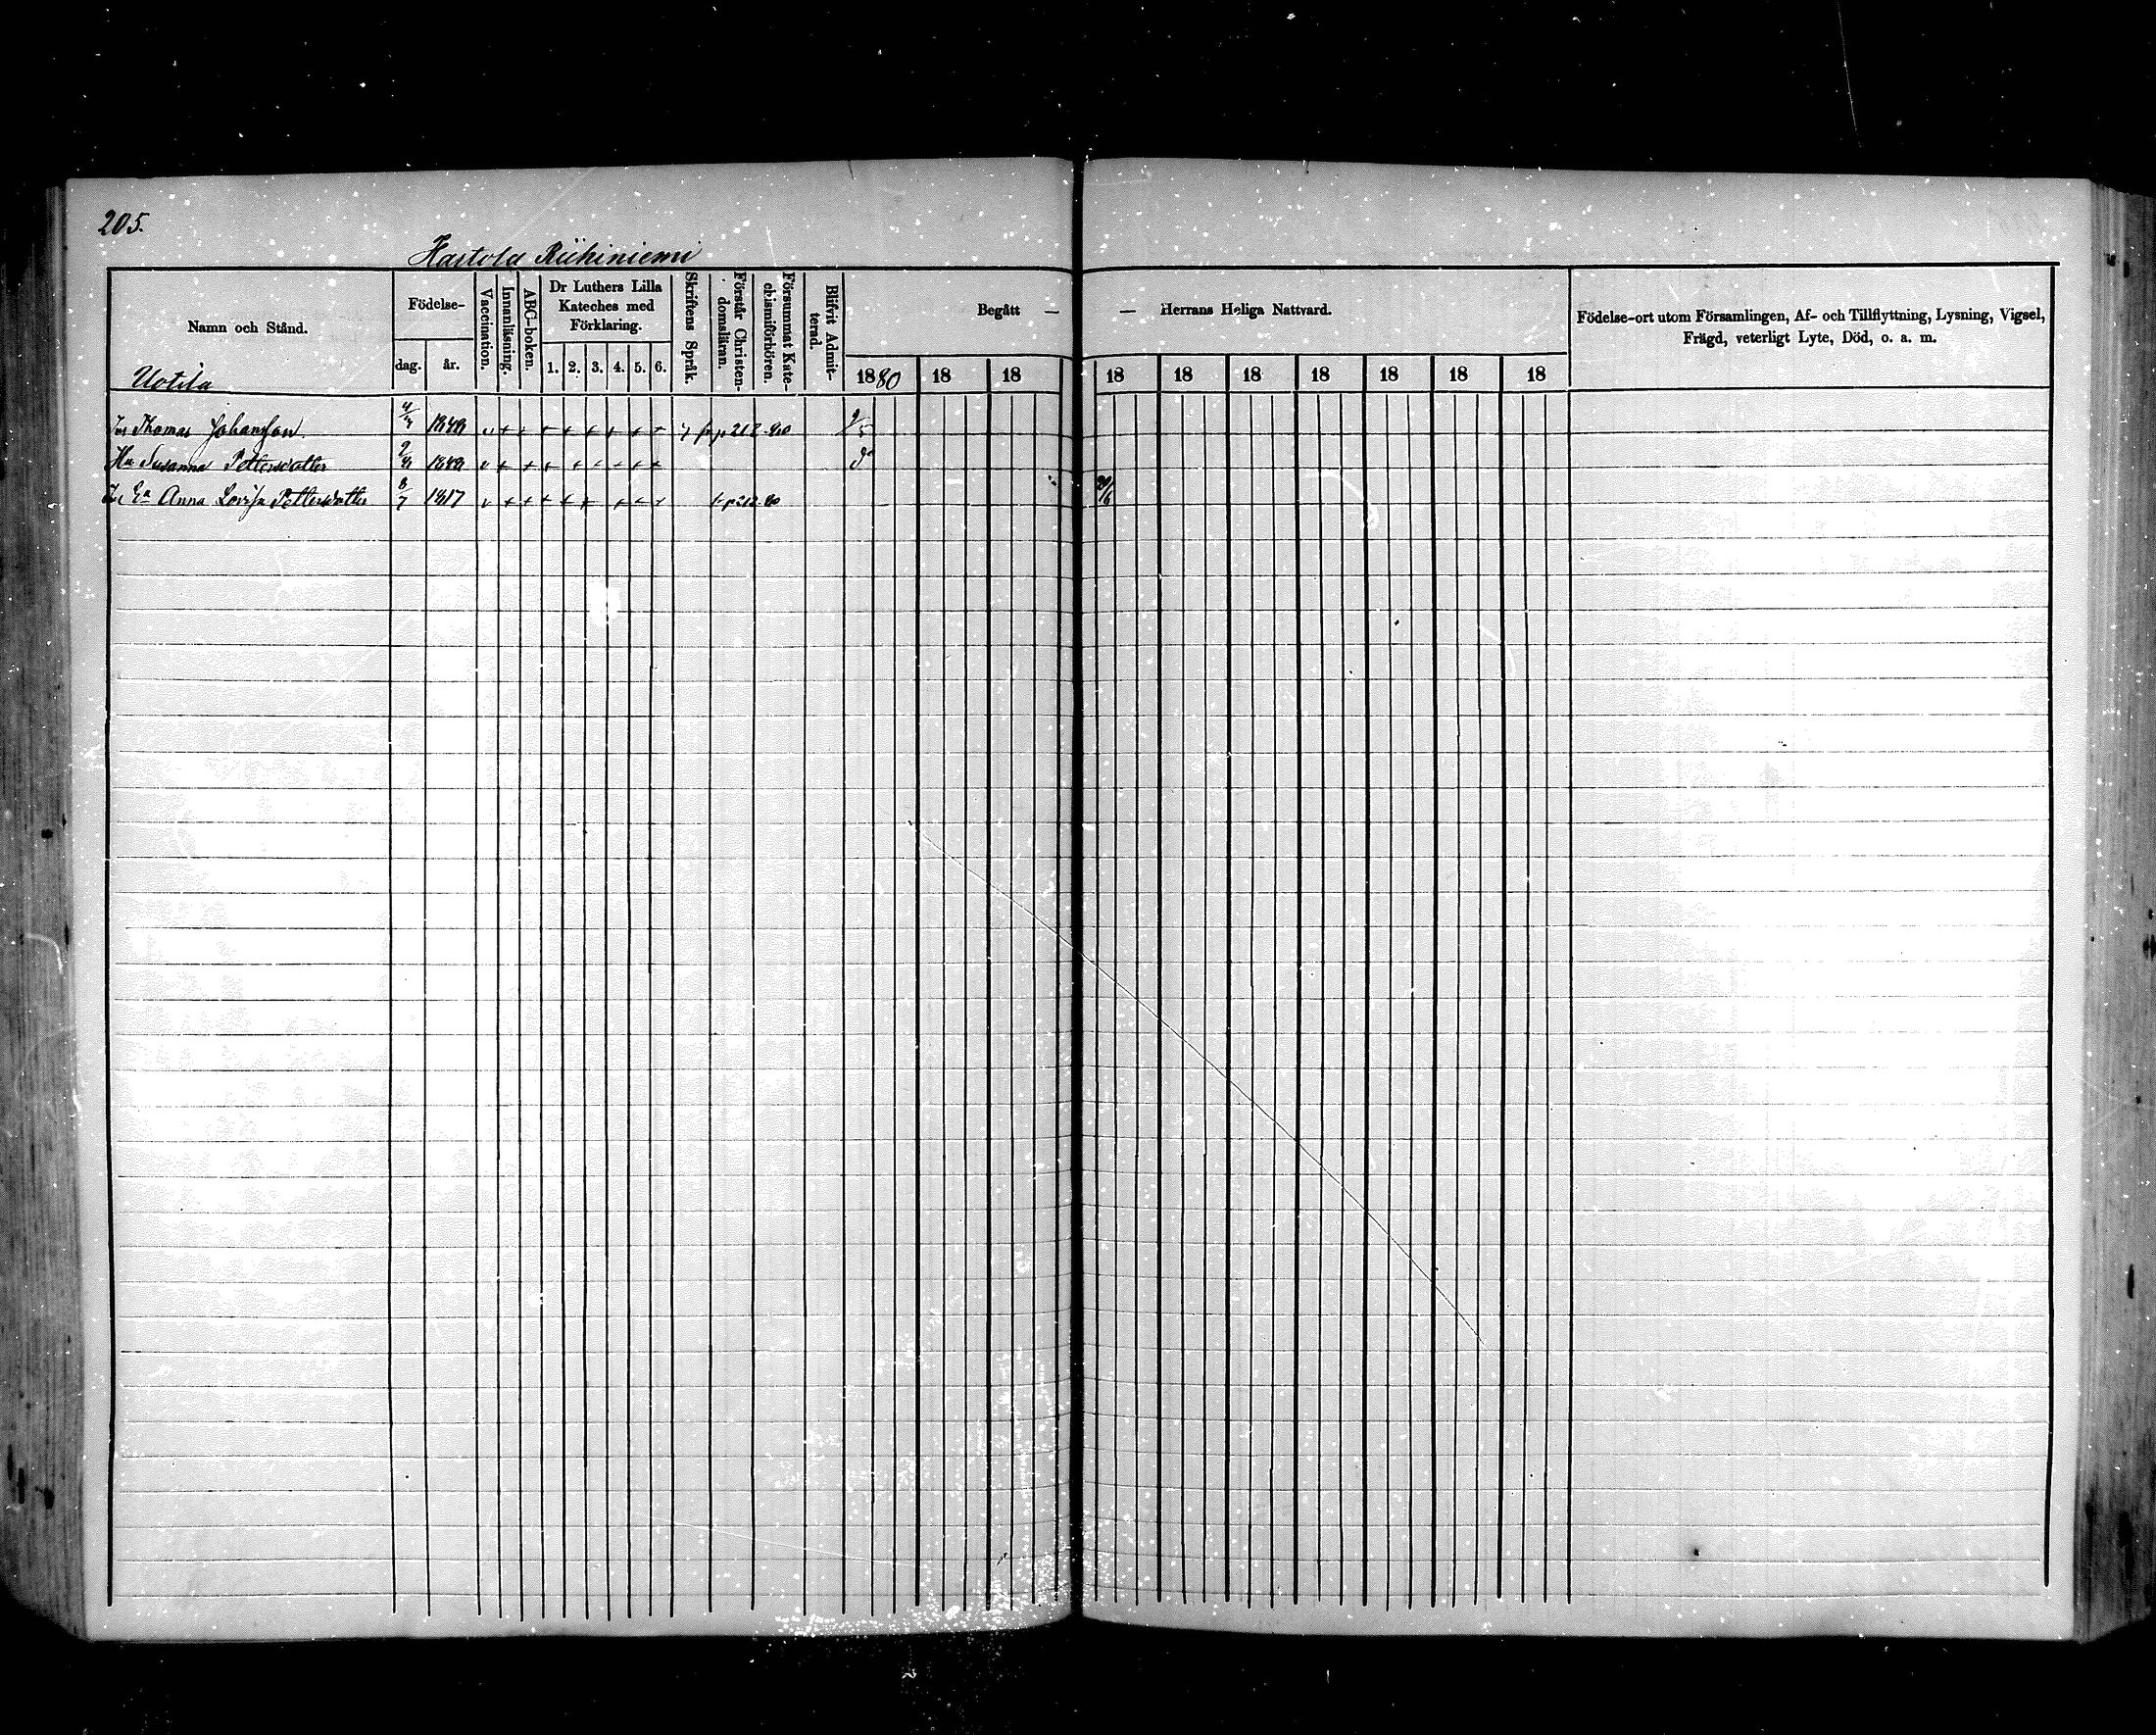 205.
Hartola Riihiniemi
Namn och Stånd.
Födelse-
dag. år.
Vaccination.
Innanläsning.
ABC-boken.
Dr Luthers Lilla Kateches med Förklaring.
1. 2. 3. 4. 5. 6.
Skriftens Språk.
Förstår Christen-domsläran.
Försummat Kate-chismiförhören.
Blifvit Admit-terad.
Begått — — Herrans Heliga Nattvard.
1880 18 18 18 18 18 18 18 18 18
Födelse-ort utom Församlingen, Af- och Tillflyttning, Lysning, Vigsel,
Frägd, veterligt Lyte, Död, o. a. m.
Uotila
Thomas Johansson
Hu Susanna Pettersdotter
Anna Lovisa Pettersdotter 8/7 1817